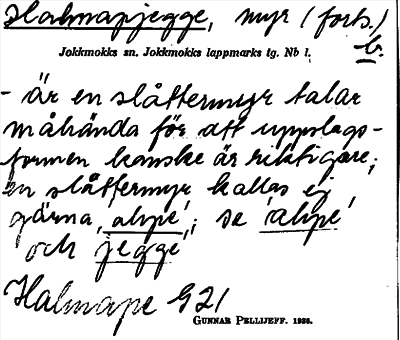 Halmapjegge, myr (forts.)
b.
Jokkmokks sn. Jokkmokks lappmarks tg. Nb l.
- är en slåttermyr talar
måhända för att uppslags-
formen kanske är riktigare;
en slåttermyr kallas ej
gärna 'ahpe'; se 'ahpe'
och 'jegge'
Halmape G21
GUNNAR PELLIJEFF. 1936.